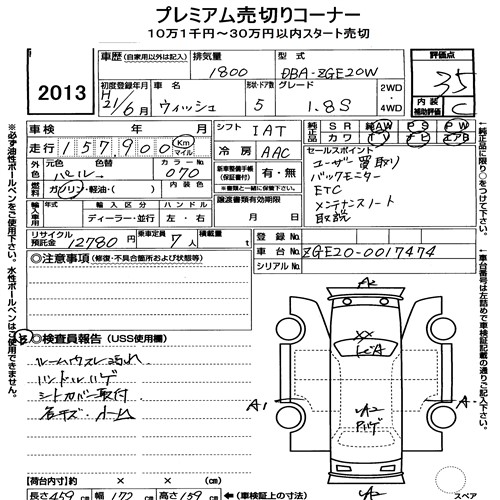 プレミアム売切りコーナー
10万1千円～30万円以内スタート売切
2013
車歴（自家用以外は記入） 排気量 型式 評価点
1800 DBA-ZGE20W 3.5
初度登録年月 車名 形状・ドア数 グレード 2WD・4WD 内装補助評価 C
H21/6月 ウィッシュ 5 1.8S
車検 年 月 シフト IAT 純正品 SR AW PS PW
カワ TV ナビ エアB
走行 157,900 Km マイル 冷房 AAC
外色 元色 パール 色替 カラーNo. 070
燃料 ガソリン・軽油・( ) 内装色
新車整備手帳（保証書付） 有・無
※書類と一緒に保管下さい。
セールスポイント
ユーザー買取り
バックモニター
ETC
メンテナンスノート
取説
輸入車用 輸入区分 ハンドル
ディーラー・並行 左・右
譲渡書類有効期限
月 日
リサイクル預託金 12780円 乗車定員 7人 積載量 t
登録No.
車台No. ZGE20-0017474
シリアルNo.
◎注意事項（修復・不具合箇所および状態等）
◎検査員報告（USS使用欄）
ルームウスレ汚れ
ハンドルハゲ
シートカバー取付
各キズ・
A2
XX
A1
A2
A2
【荷台内寸】 × × (cm)
長さ 459cm 幅 172cm 高さ 159cm (車検証上の寸法)
スペア
※必ず油性ボールペンをご使用下さい。水性ボールペンはご使用できません。
↑純正品に限り○をつけて下さい。
↑車台番号は左詰めで車検証記載の通りご記入下さい。